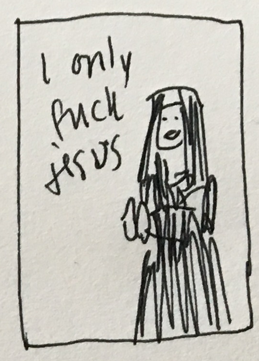 I only
fuck
jesus